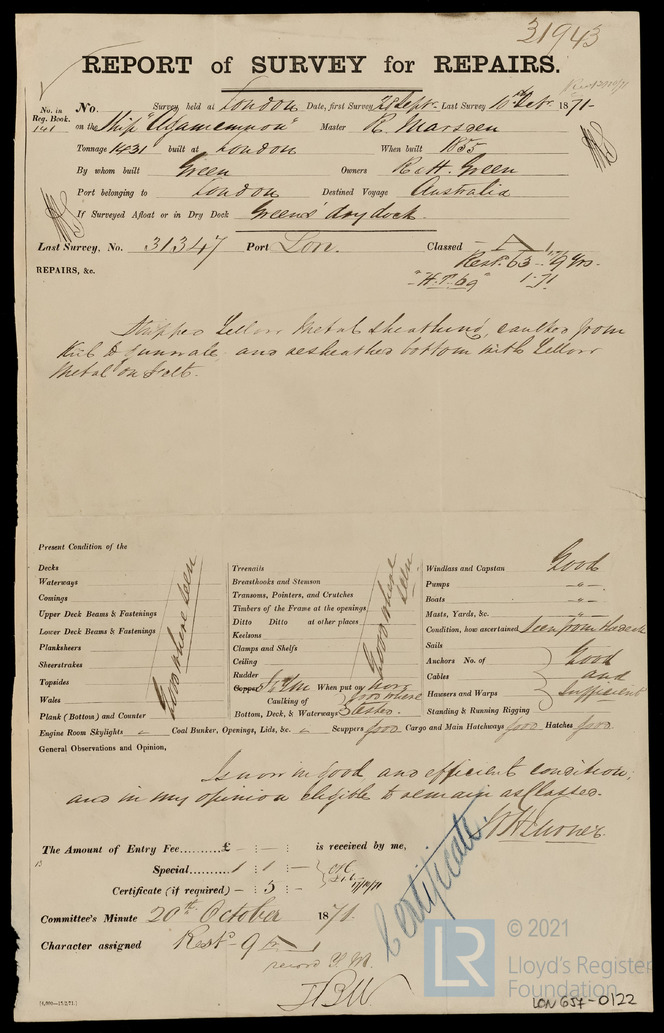 31943
REPORT of SURVEY for REPAIRS.
No. in Reg. Book. 141
No. Survey held at London Date, first Survey 28 Sept. Last Survey 10th Oct. 1871
on the Ship "Agamemnon" Master R. Marsden
Tonnage 1431 built at London When built 1855
By whom built Green Owners R & H. Green
Port belonging to London Destined Voyage Australia
If Surveyed Afloat or in Dry Dock Greens' dry dock.
Last Survey, No. 31347 Port Lon. Classed A 1
Rest. 63 - 9 yrs.
"H.T. 69" 1.71
REPAIRS, &c.
Stripped Yellow Metal sheathing, caulked from
Keel to Gunwale, and resheathed bottom with Yellow
Metal on Felt.
Present Condition of the
Decks
Waterways
Comings
Upper Deck Beams & Fastenings
Lower Deck Beams & Fastenings
Planksheers
Sheerstrakes
Topsides
Wales
Plank (Bottom) and Counter
Good where seen
Treenails
Breasthooks and Stemson
Transoms, Pointers, and Crutches
Timbers of the Frame at the openings
Ditto Ditto at other places
Keelsons
Clamps and Shelfs
Ceiling
Rudder
Copper Y.M. When put on now
Caulking of Bottom, Deck, & Waterways good where tested.
Good where seen
Windlass and Capstan Good
Pumps "
Boats "
Masts, Yards, &c. "
Condition, how ascertained Seen from the deck
Sails
Anchors No. of
Cables
Hawsers and Warps
Standing & Running Rigging
Good and Sufficient
Engine Room Skylights - Coal Bunker, Openings, Lids, &c. - Scuppers good Cargo and Main Hatchways good Hatches good
General Observations and Opinion,
Is now in good and efficient condition,
and in my opinion eligible to remain as classed.
The Amount of Entry Fee.........£ - : - : - is received by me,
Special.........1 : 1 : -
Certificate (if required) - : 5 : -
Certificate.
Committee's Minute 20th October 1871.
Character assigned Rest. 9 A 1
record Y.M.
© 2021
LR
Lloyd's Register
Foundation
LON 657-0122